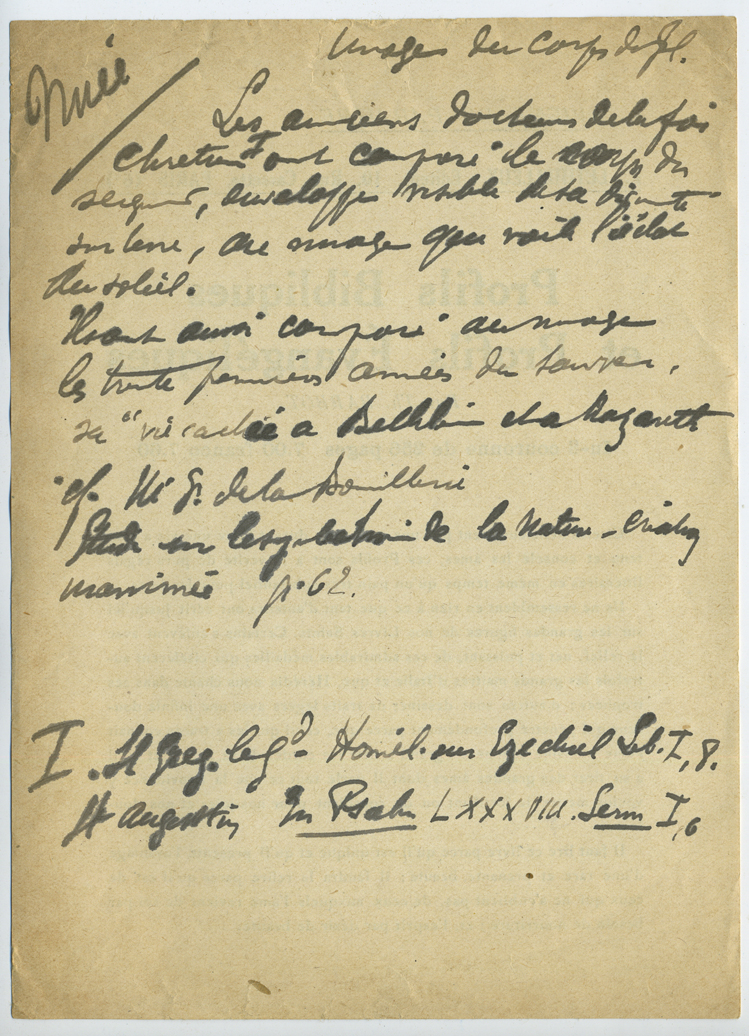 Nuée
Images du corps de J.C.
Les anciens docteurs de la foi
chrétienne I ont comparé le corps du
seigneur, enveloppe visible de sa divinité
sur terre, au nuage qui voile l'éclat
du soleil.
Ils ont aussi comparé au nuage
les trente premières années du Sauveur,
sa "vie cachée a Bethléem et a Nazareth
cf. Mgr. de la Bouillerie
Etude sur le symbolisme de la Nature -
p. 62.
I. St Greg. le Gd - Homél. sur Ezechiel Lib. I, 8.
St Augustin In Psalm LXXXVIII. Serm I, 6
Profils Bibliques